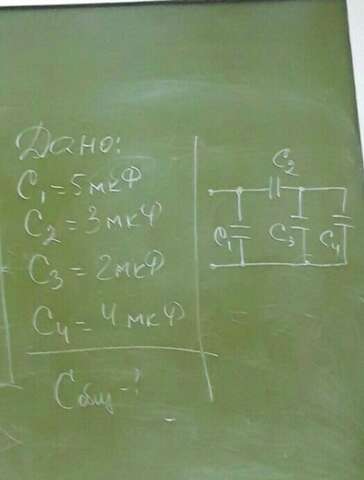 Дано:
C₁=5мкФ
C₂=3мкФ
C₃=2мкФ
C₄=4мкФ
Cобщ-?
C₂
C₁
C₃
C₄